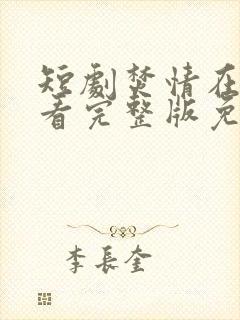 短劇焚情在
看完整版免
李長奎